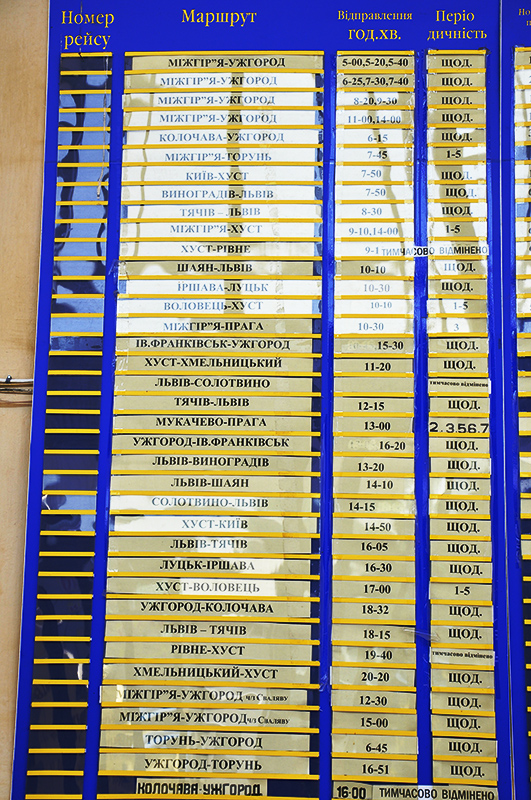 Номер рейсу Маршрут Відправлення ГОД.ХВ. Періо дичність
МІЖГІР"Я-УЖГОРОД 5-00,5-20,5-40 ЩОД.
МІЖГІР"Я-УЖГОРОД 6-25,7-30,7-40 ЩОД.
МІЖГІР"Я-УЖГОРОД 8-20,9-30 ЩОД.
МІЖГІР"Я-УЖГОРОД 11-00,14-00 ЩОД.
КОЛОЧАВА-УЖГОРОД 6-15 ЩОД.
МІЖГІР"Я-ГОРУНЬ 7-45 1-5
КИЇВ-ХУСТ 7-50 ЩОД.
ВИНОГРАДІВ-ЛЬВІВ 7-50 ЩОД.
ТЯЧІВ – ЛЬВІВ 8-30 ЩОД.
МІЖГІР"Я-ХУСТ 9-10,14-00 1-5
ХУСТ-РІВНЕ 9-1 ТИМЧАСОВО ВІДМІНЕНО
ШАЯН-ЛЬВІВ 10-10 ЩОД.
ІРШАВА-ЛУЦЬК 10-30 ЩОД.
ВОЛОВЕЦЬ-ХУСТ 10-10 1-5
МІЖГІР"Я-ПРАГА 10-30 3
ІВ.ФРАНКІВСЬК-УЖГОРОД 15-30 ЩОД.
ХУСТ-ХМЕЛЬНИЦЬКИЙ 11-20 ЩОД.
ЛЬВІВ-СОЛОТВИНО тимчасово відмінено
ТЯЧІВ-ЛЬВІВ 12-15 ЩОД.
МУКАЧЕВО-ПРАГА 13-00 2.3.5.6.7
УЖГОРОД-ІВ.ФРАНКІВСЬК 16-20 ЩОД.
ЛЬВІВ-ВИНОГРАДІВ 13-20 ЩОД.
ЛЬВІВ-ШАЯН 14-10 ЩОД.
СОЛОТВИНО-ЛЬВІВ 14-15 ЩОД.
ХУСТ-КИЇВ 14-50 ЩОД.
ЛЬВІВ-ТЯЧІВ 16-05 ЩОД.
ЛУЦЬК-ІРШАВА 16-30 ЩОД.
ХУСТ-ВОЛОВЕЦЬ 17-00 1-5
УЖГОРОД-КОЛОЧАВА 18-32 ЩОД.
ЛЬВІВ – ТЯЧІВ 18-15 ЩОД.
РІВНЕ-ХУСТ 19-40 тимчасово відмінено
ХМЕЛЬНИЦЬКИЙ-ХУСТ 20-20 ЩОД.
МІЖГІР"Я-УЖГОРОД ч/з Сваляву 12-30 ЩОД.
МІЖГІР"Я-УЖГОРОД ч/з Сваляву 15-00 ЩОД.
ТОРУНЬ-УЖГОРОД 6-45 ЩОД.
УЖГОРОД-ТОРУНЬ 16-51 ЩОД.
КОЛОЧАВА-УЖГОРОД 16-00 ТИМЧАСОВО ВІДМІНЕНО